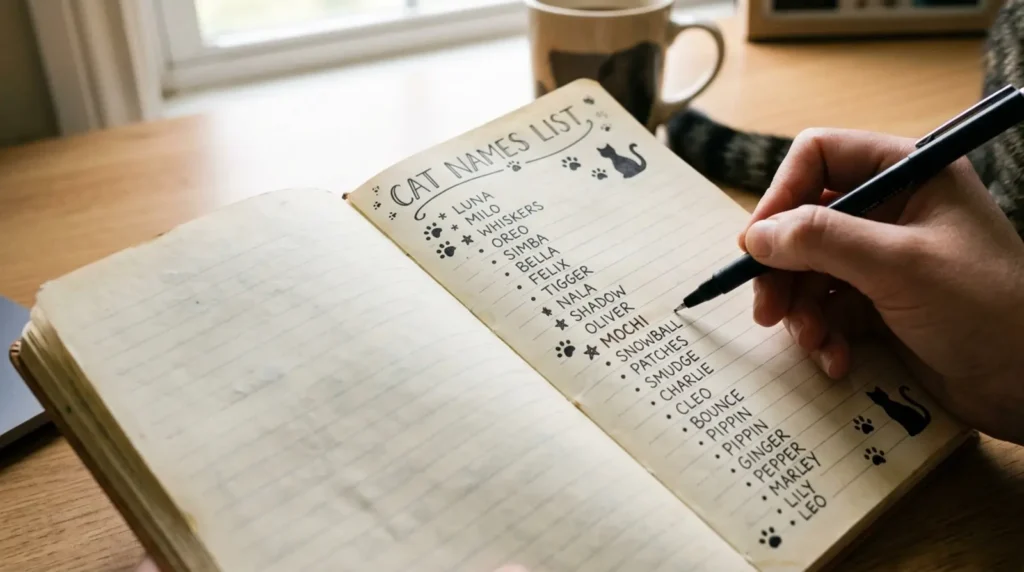 CAT NAMES LIST
LUNA
MILO
WHISKERS
OREO
SIMBA
BELLA
FELIX
TIGGER
NALA
SHADOW
OLIVER
MOCHI
SNOWBALL
PATCHES
SMUDGE
CHARLIE
CLEO
BOUNCE
PIPPIN
PIPPIN
GINGER
PEPPER
MARLEY
LILY
LEO